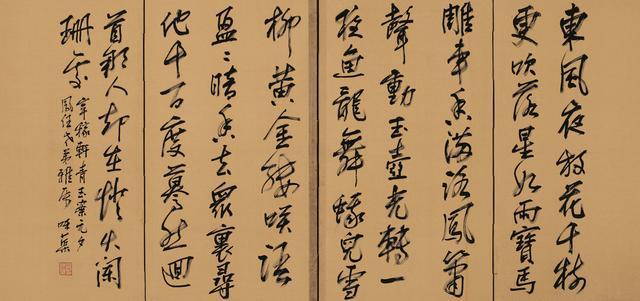 東風夜放花千樹
更吹落星如雨寶馬
雕車香滿路鳳簫
聲動玉壺光轉一
夜魚龍舞蛾兒雪
柳黃金縷咲語
盈〻暗香去眾裏尋
他千百度驀然迴
首那人却在燈火闌
珊處
辛稼軒青玉案元夕
弟雅屬